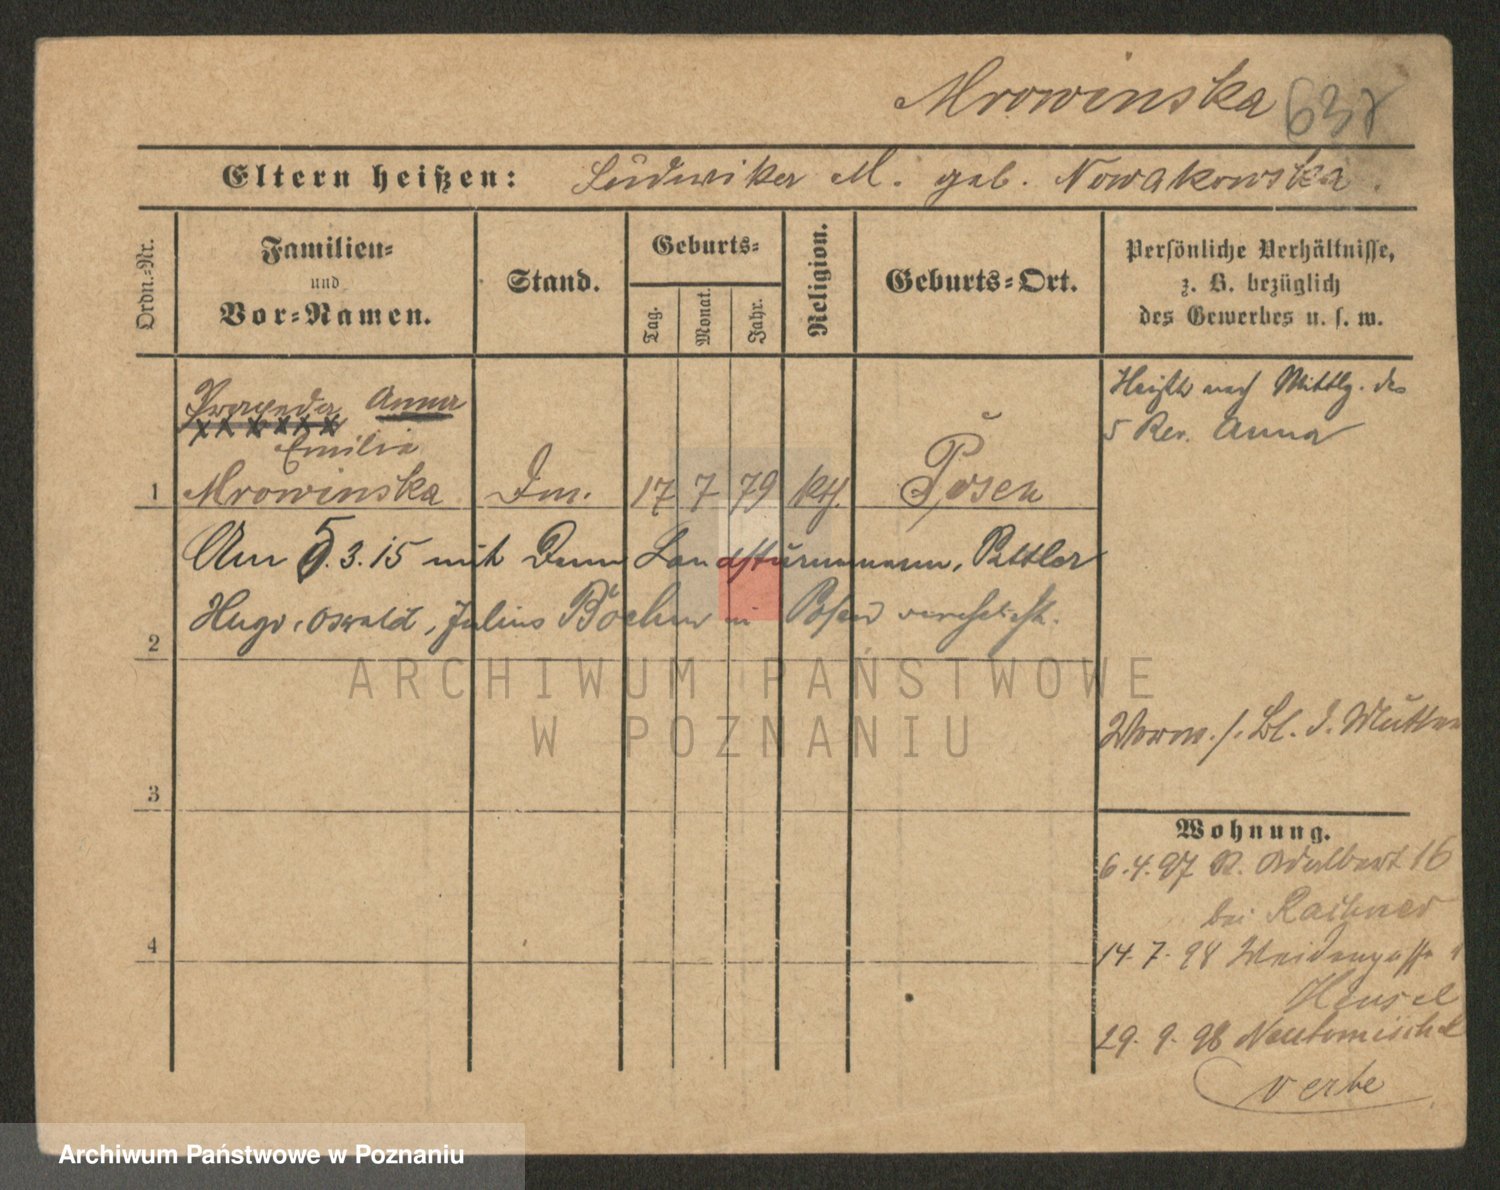 Mrowinska 637
Eltern heißen: Ludwika M. geb. Nowakowska.
Ordn.-Nr.
Familien-
und
Vor-Namen.
Stand.
Geburts-
Tag.
Monat.
Jahr.
Religion.
Geburts-Ort.
Persönliche Verhältnisse,
z. B. bezüglich
des Gewerbes u. s. w.
Praxeda Anna
Emilia
1 Mrowinska Dm. 17 7 79 kth. Posen
Heißt nach Mittlg. des
5 Rev. Anna
Am 5.3.15 mit dem Landsturmmann, Sattler
2 Hugo, Oswald, Julius Böhm in Posen verehelicht.
Vorm. s. Bl. d. Mutter
3
4
Wohnung.
6.4.97 St. Adalbert 16
bei
14.7.98 Weidengasse
Hensel
29.9.98 Neutomischel
verte
ARCHIWUM PAŃSTWOWE
W POZNANIU
Archiwum Państwowe w Poznaniu